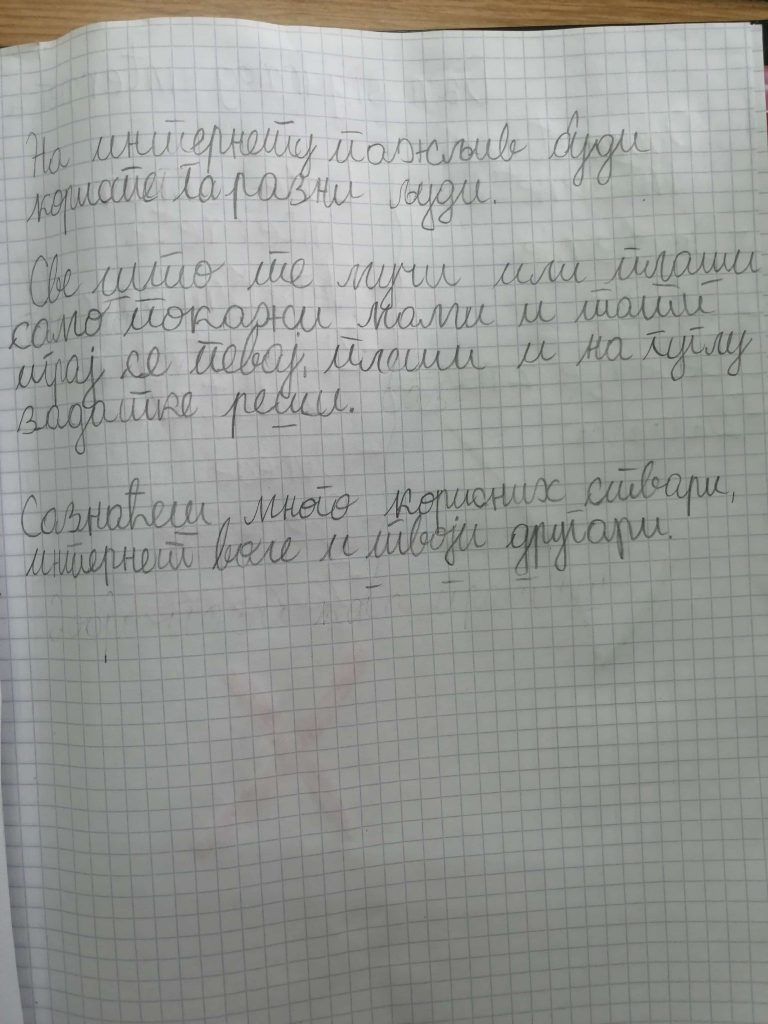 На интернету пажљив буди
користе га разни људи.
Све што те мучи или плаши
само покажи мами и тати
играј се певај, плеши и на гуглу
задатке реши.
Сазнаћеш много корисних ствари,
интернет воле и твоји другари.